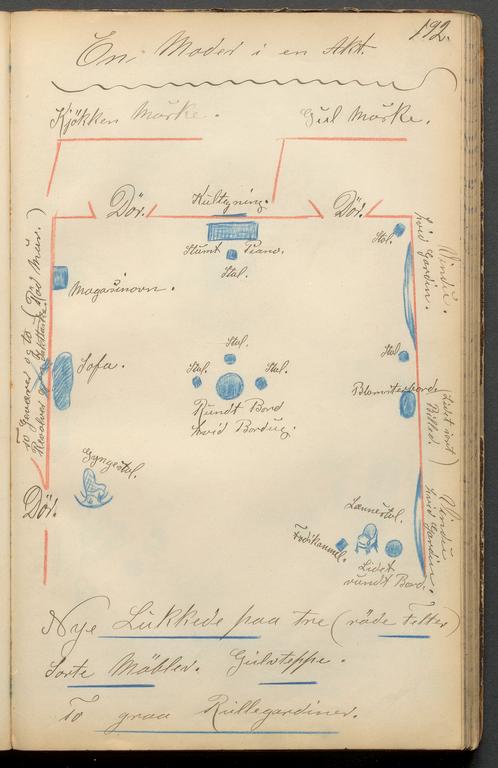 192.
En Moder i en Akt.
Kjökken Mörke.
Gul Mörke.
Dör.
Kultegning.
Dör.
Stumt Piano.
Stol.
Stol.
Vindu.
hvid Gardin.
Magasinovn.
to Geværer og to
Revolver
(Rød Mur.)
Sofa.
Stol.
Stol.
Stol.
Rundt Bord
hvid Bordug.
Stol
Blomsterbord
Lidet sort
Billed.
Gyngestol.
Dör.
Lænnestol.
Fodskammel.
Lidet
rundt Bord.
Vindu
hvid Gardin.
Nye Lukkede paa tre (röde Felter)
Sorte Möbler. Gulvteppe.
To graa Rullegardiner.